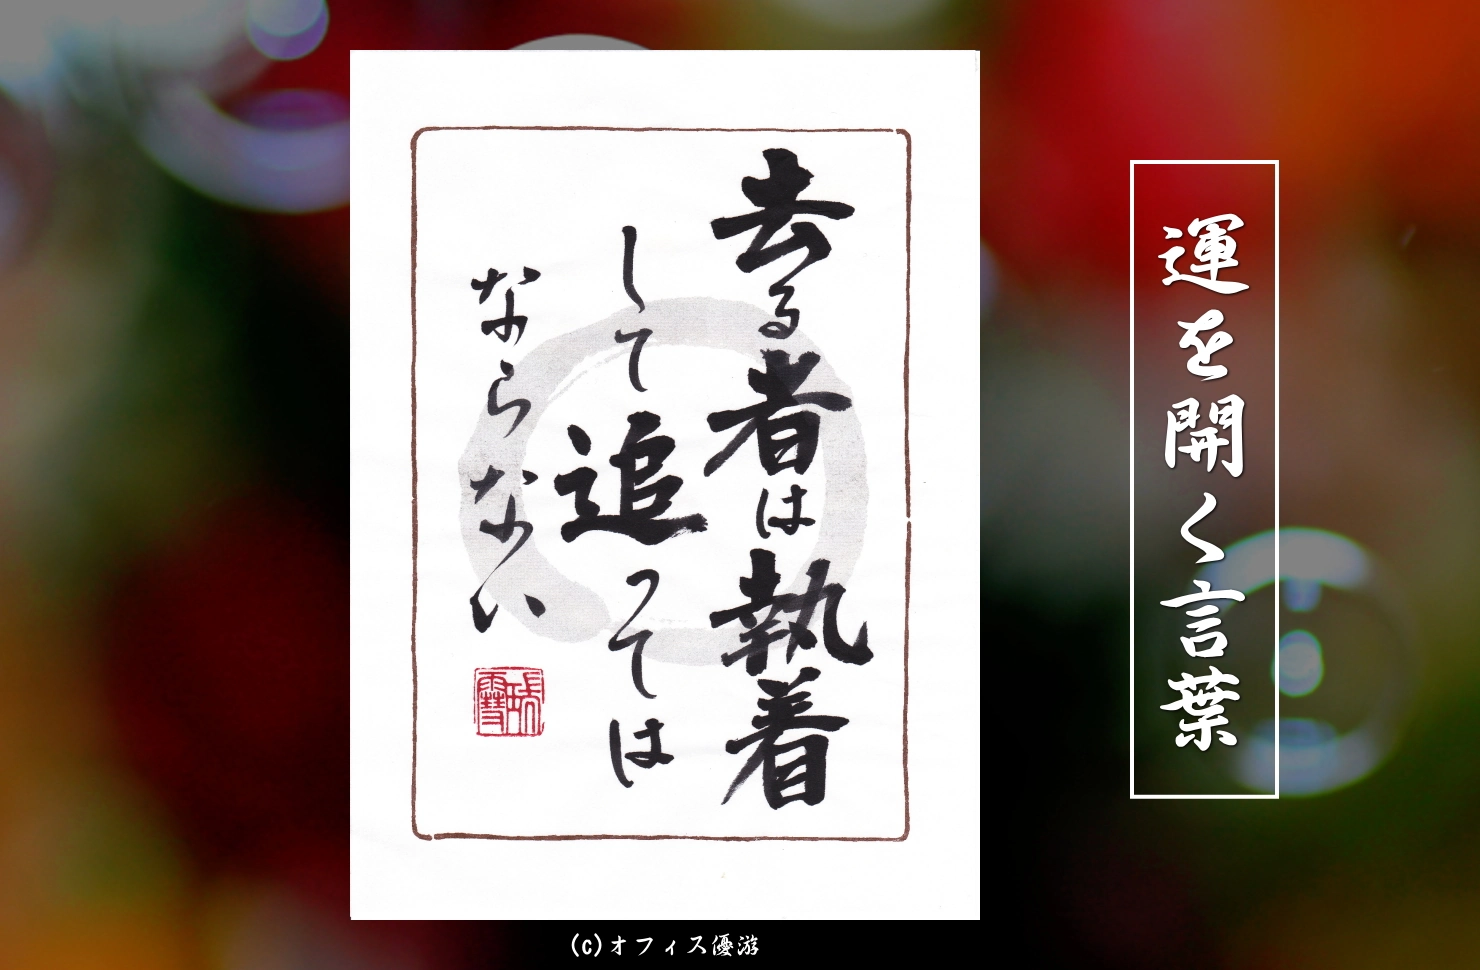 運を開く言葉
去る者は執着
して追っては
ならない
(c)オフィス優游